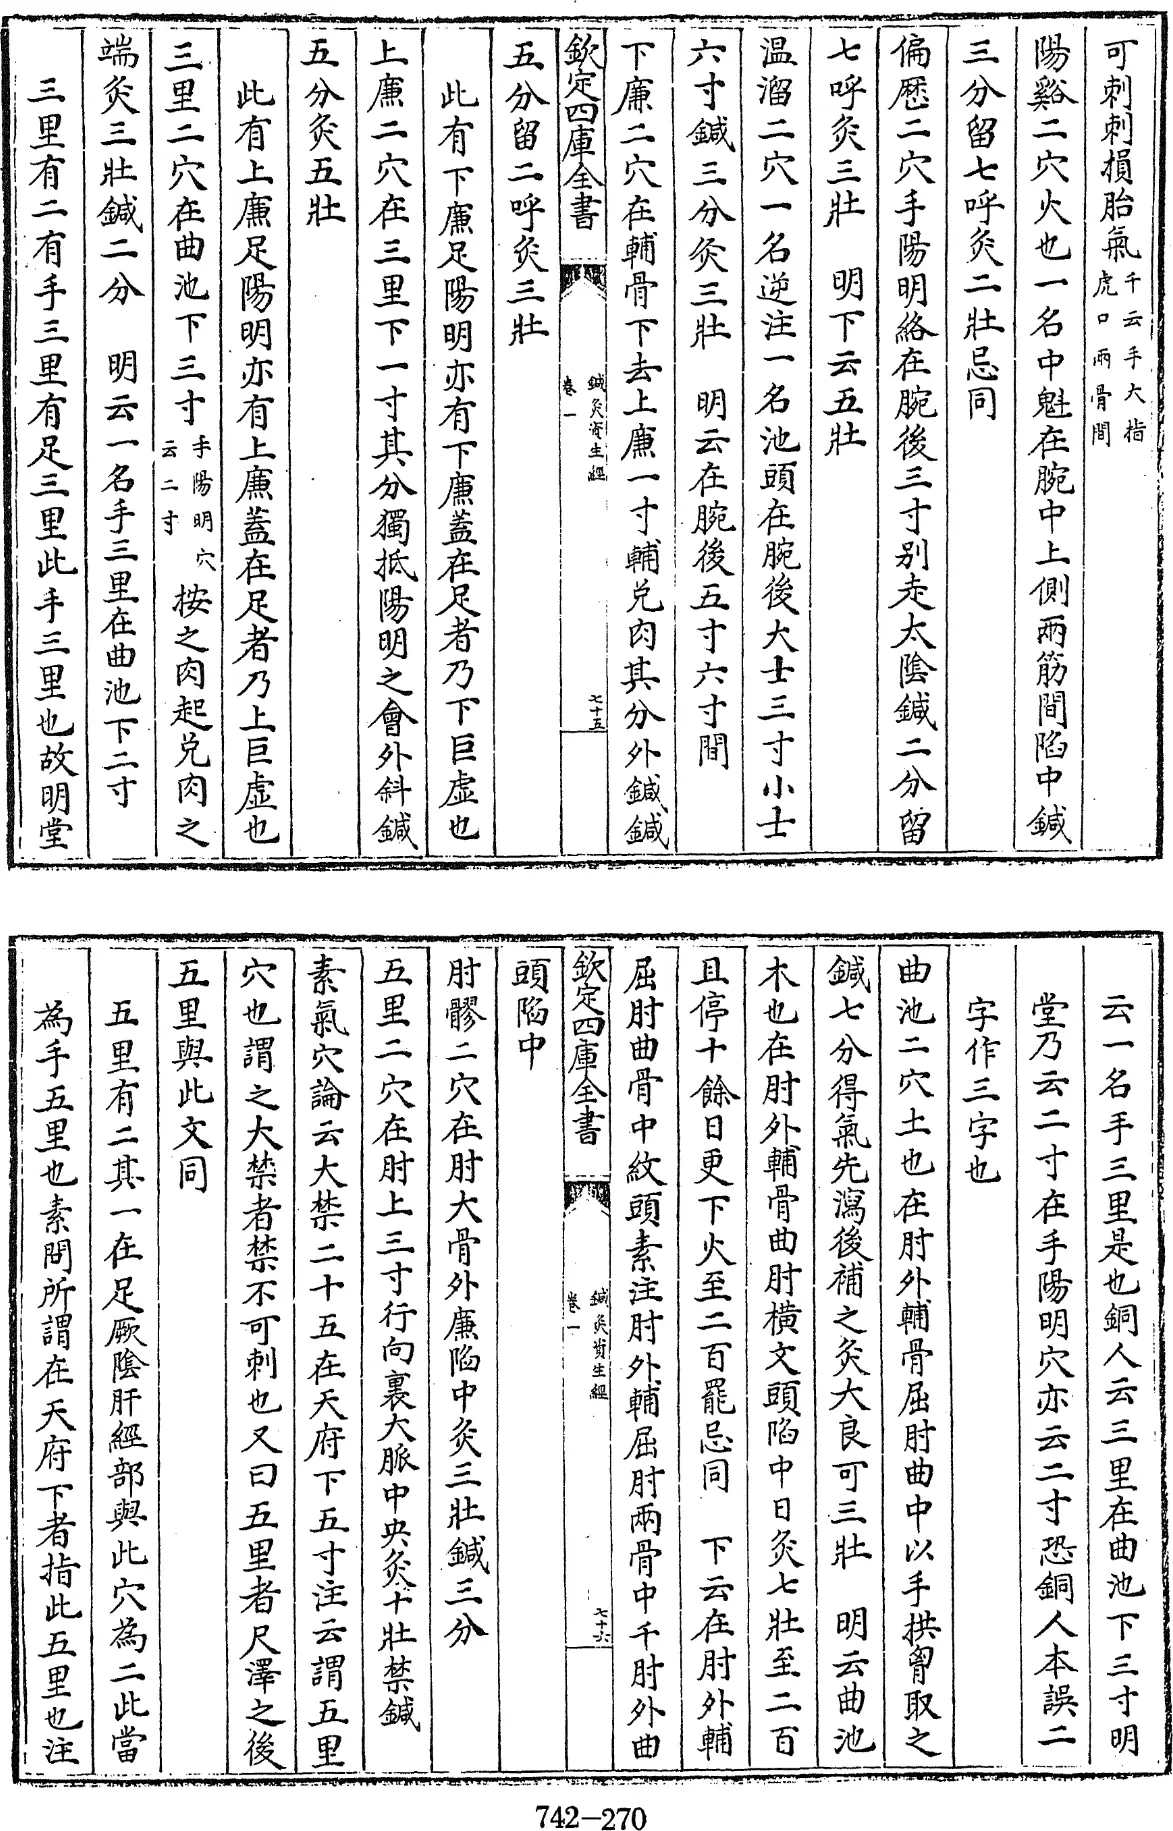 可刺刺損胎氣千云手大指虎口兩骨間
陽谿二穴火也一名中魁在腕中上側兩筋間陷中鍼
三分留七呼灸二壯忌同
偏歴二穴手陽明絡在腕後三寸别走太陰鍼二分留
七呼灸三壯　明下云五壯
温溜二穴一名逆注一名池頭在腕後大士三寸小士
六寸鍼三分灸三壯　明云在腕後五寸六寸間
下廉二穴在輔骨下去上廉一寸輔兌肉其分外鍼鍼
欽定四庫全書　鍼灸資生經　卷一　七十五
五分留二呼灸三壯
此有下廉足陽明亦有下廉蓋在足者乃下巨虚也
上廉二穴在三里下一寸其分獨抵陽明之會外斜鍼
五分灸五壯
此有上廉足陽明亦有上廉蓋在足者乃上巨虚也
三里二穴在曲池下三寸手陽明穴云二寸按之肉起兌肉之
端灸三壯鍼二分　明云一名手三里在曲池下二寸
三里有二有手三里有足三里此手三里也故明堂
云一名手三里是也銅人云三里在曲池下三寸明
堂乃云二寸在手陽明穴亦云二寸恐銅人本誤二
字作三字也
曲池二穴土也在肘外輔骨屈肘曲中以手拱胷取之
鍼七分得氣先瀉後補之灸大良可三壯　明云曲池
木也在肘外輔骨曲肘横文頭陷中日灸七壯至二百
且停十餘日更下火至二百罷忌同　下云在肘外輔
屈肘曲骨中紋頭素注肘外輔屈肘兩骨中千肘外曲
欽定四庫全書　鍼灸資生經　卷一　七十六
頭陷中
肘髎二穴在肘大骨外廉陷中灸三壯鍼三分
五里二穴在肘上三寸行向裏大脈中央灸十壯禁鍼
素氣穴論云大禁二十五在天府下五寸注云謂五里
穴也謂之大禁者禁不可刺也又曰五里者尺澤之後
五里與此文同
五里有二其一在足厥陰肝經部與此穴為二此當
為手五里也素問所謂在天府下者指此五里也注
742-270